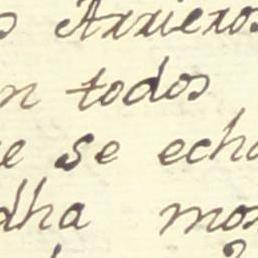 s Arrieros
n todos
e se echa
dha mon